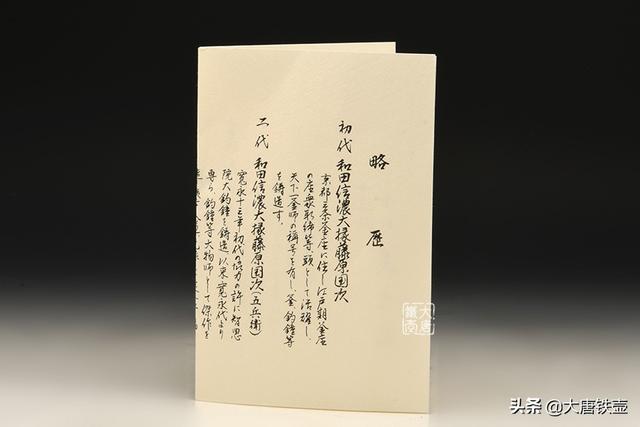 略歴
初代 和田信濃大掾藤原国次
京都三条釜座に住し江戸期釜座
の座衆取締等頭として活躍し、
天下一釜師の称号を有し、釜、釣鐘等
を鋳造す。
二代 和田信濃大掾藤原国次(五兵衛)
寛永十三年初代の協力の許に智恩
院大釣鐘を鋳造以来寛永代より
専ら釣鐘等大物師として傑作を
大唐
鐵壺
头条 @大唐铁壶